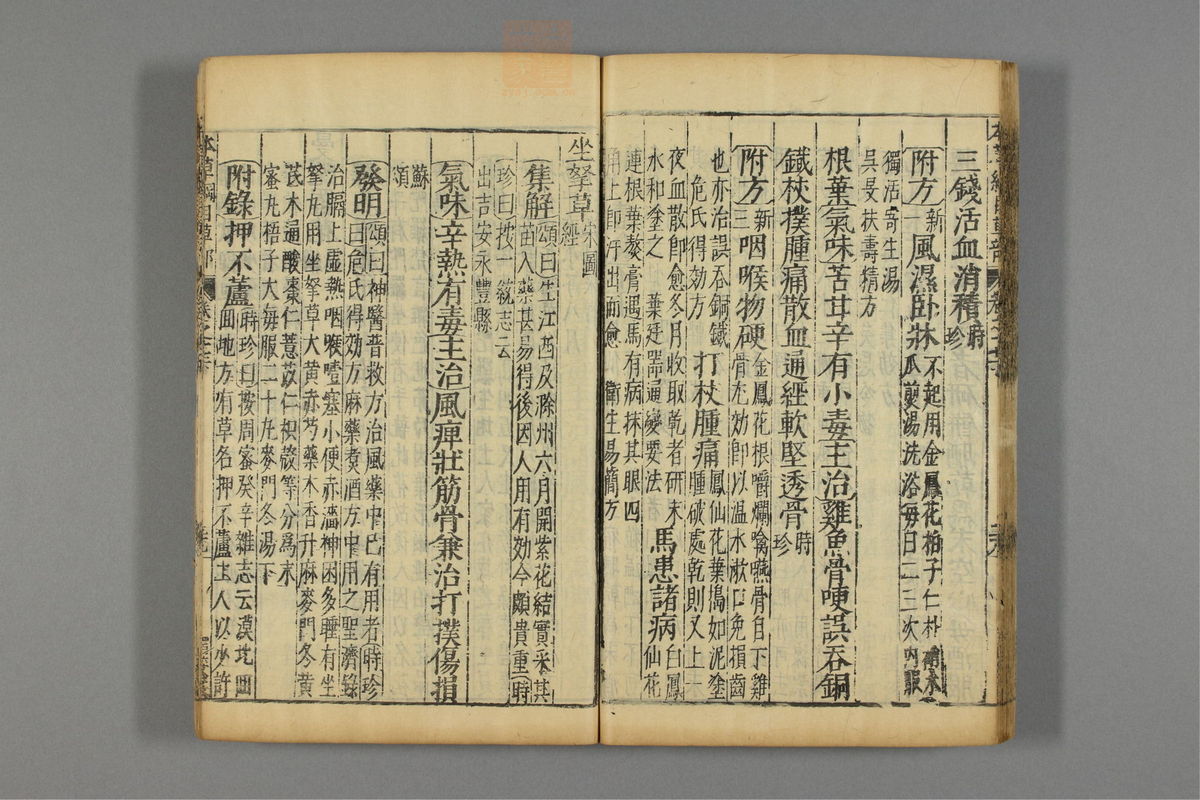 三錢活血消積時珍
附方新一風濕臥牀不起用金鳳花柏子仁朴硝木
瓜煎湯洗浴每日二三次內服
獨活寄生湯
吳旻扶壽精方
根葉氣味苦甘辛有小毒主治雞魚骨哽誤吞銅
鐵杖撲腫痛散血通經軟堅透骨時珍
附方新三咽喉物硬金鳳花根嚼爛噙嚥骨自下雞
骨尤効即以温水漱口免損齒
也亦治誤吞銅鐵
危氏得効方
打杖腫痛鳳仙花葉搗如泥塗
腫破處乾則又上一
夜血散即愈冬月收取乾者研末
水和塗之 葉廷器通變要法
馬患諸病白鳳
仙花
連根葉熬膏遇馬有病抹其眼四
角上即汗出而愈 衛生易簡方
坐拏草宋圖經
集解頌曰生江西及滁州六月開紫花結實采其
苗入藥甚易得後因人用有効今頗貴重時
珍曰按一統志云
出吉安永豐縣
氣味辛熱有毒主治風痺壯筋骨兼治打撲傷損
蘇頌
發明頌曰神醫普救方治風藥中已有用者時珍
曰危氏得効方麻藥煑酒方中用之聖濟錄
治膈上虛熱咽喉噎塞小便赤澁神困多睡有坐
拏丸用坐拏草大黄赤芍藥木香升麻麥門冬黄
芪木通酸棗仁薏苡仁枳殼等分爲末
蜜丸梧子大每服二十丸麥門冬湯下
附錄押不蘆時珍曰按周密癸辛雜志云漠北回
回地方有草名押不蘆土人以少許
本草綱目草部